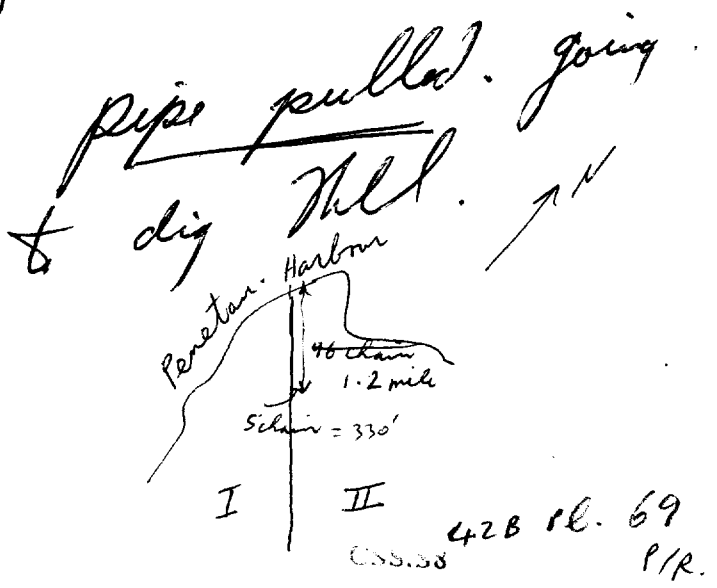 pipe pulled. going
to dig well.
N
Penetan. Harbour
96 chain
1.2 mile
5 chain = 330'
I II
42B Pl. 69
CSS.S8
P/R.